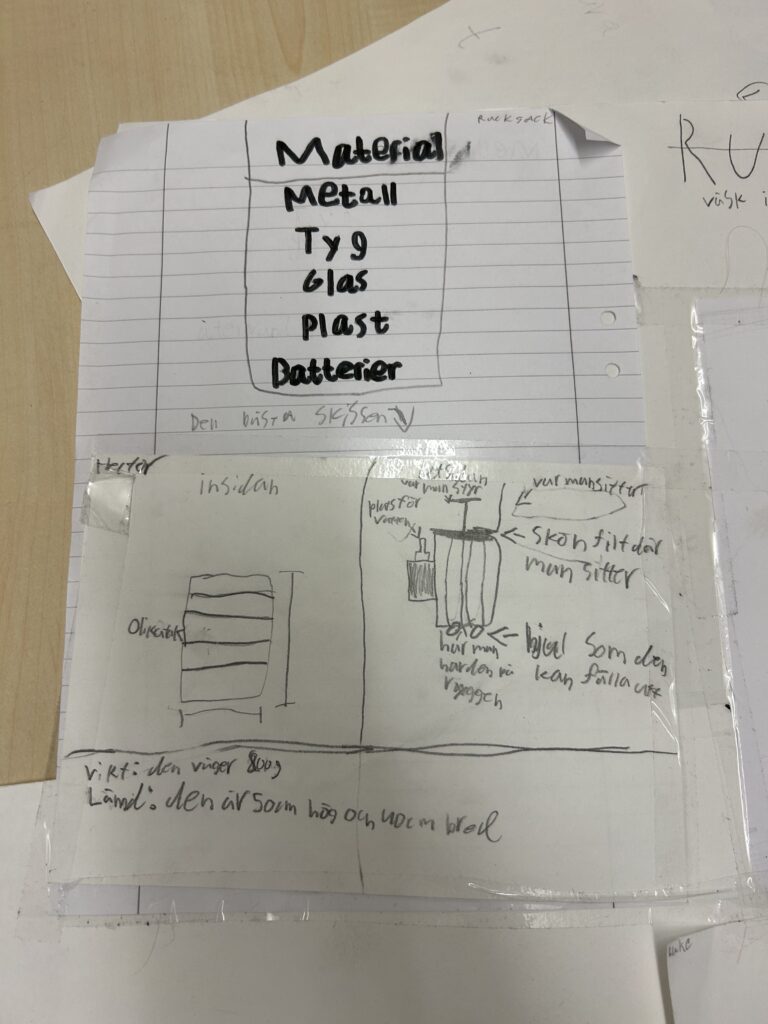 Rucksack
Material
Metall
Tyg
Glas
Plast
Batterier
RU
väsk i
Den bästa skissen
Hector
insidan
utsidan
var man styr
plats för
vatten
var man sitter
skön filt där
man sitter
hjul som den
kan fälla ut
hur man
har den på
ryggen
vikt: den väger 800g
Lämd: den är 50cm hög och 40cm bred